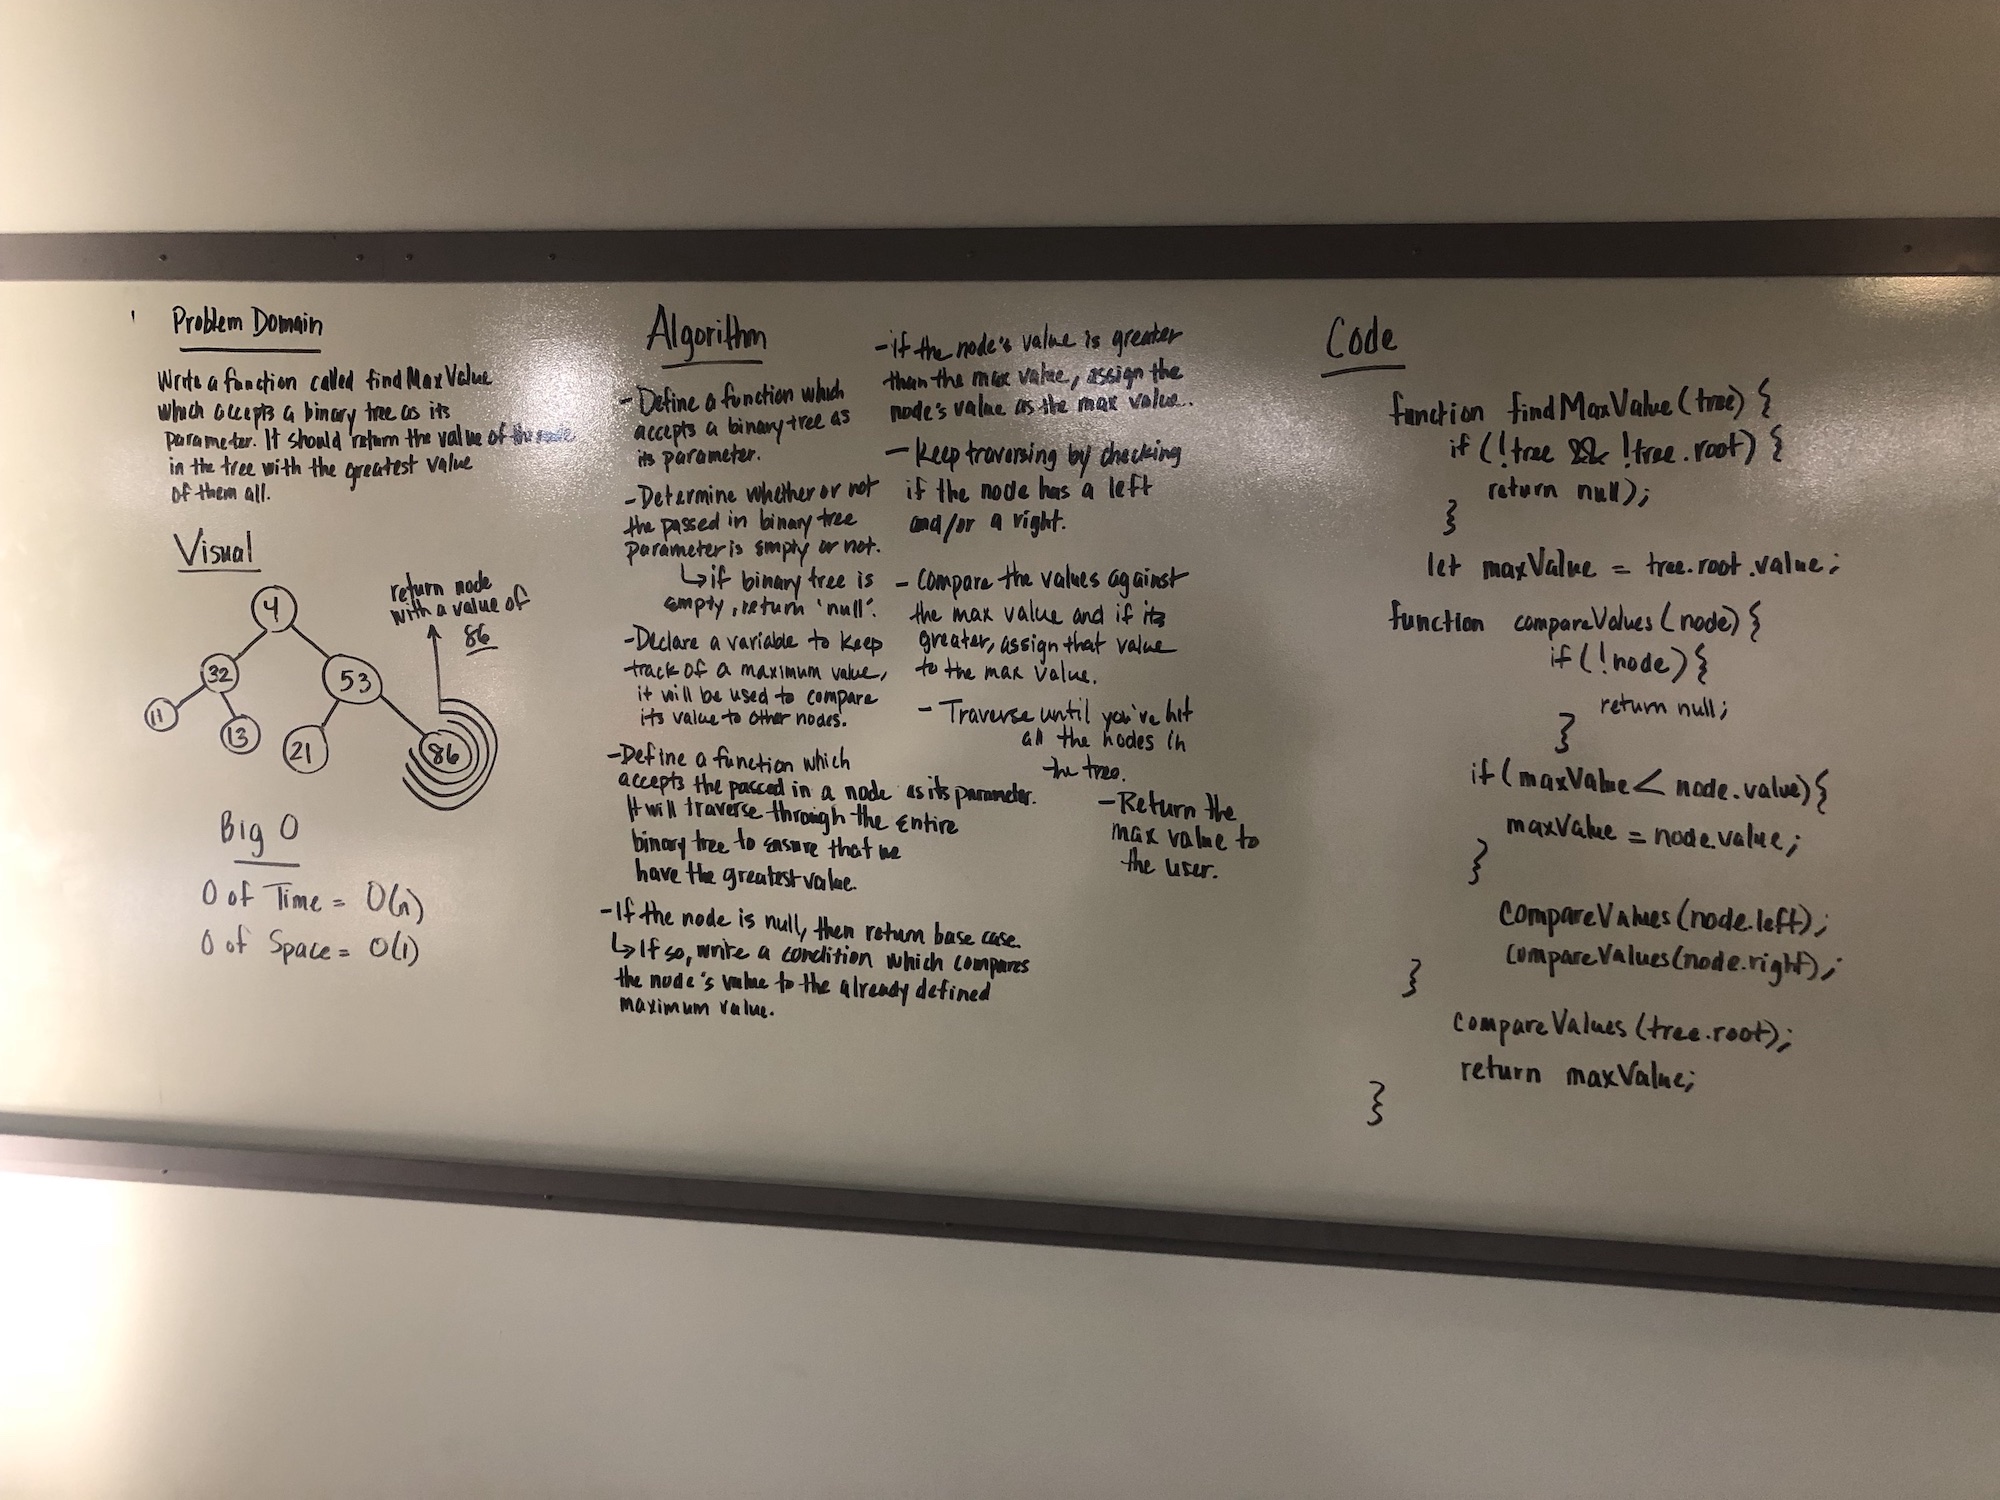 Problem Domain
Write a function called findMaxValue
which accepts a binary tree as its
parameter. It should return the value of the node
in the tree with the greatest value
of them all.
Visual
return node
with a value of
86
4
32
53
11
13
21
86
Big O
O of Time = O(n)
O of Space = O(1)
Algorithm
- Define a function which
accepts a binary tree as
its parameter.
- Determine whether or not
the passed in binary tree
parameter is empty or not.
↳ if binary tree is
empty, return 'null'.
- Declare a variable to keep
track of a maximum value,
it will be used to compare
its value to other nodes.
- Define a function which
accepts the passed in a node as its parameter.
It will traverse through the entire
binary tree to ensure that we
have the greatest value.
- If the node is null, then return base case.
↳ If so, write a condition which compares
the node's value to the already defined
maximum value.
- if the node's value is greater
than the max value, assign the
node's value as the max value.
- Keep traversing by checking
if the node has a left
and/or a right.
- Compare the values against
the max value and if its
greater, assign that value
to the max value.
- Traverse until you've hit
all the nodes in
the tree.
- Return the
max value to
the user.
Code
function findMaxValue(tree) {
if (!tree && !tree.root) {
return null);
}
let maxValue = tree.root.value;
function compareValues(node) {
if (!node) {
return null;
}
if (maxValue < node.value) {
maxValue = node.value;
}
compareValues(node.left);
compareValues(node.right);
}
compareValues(tree.root);
return maxValue;
}